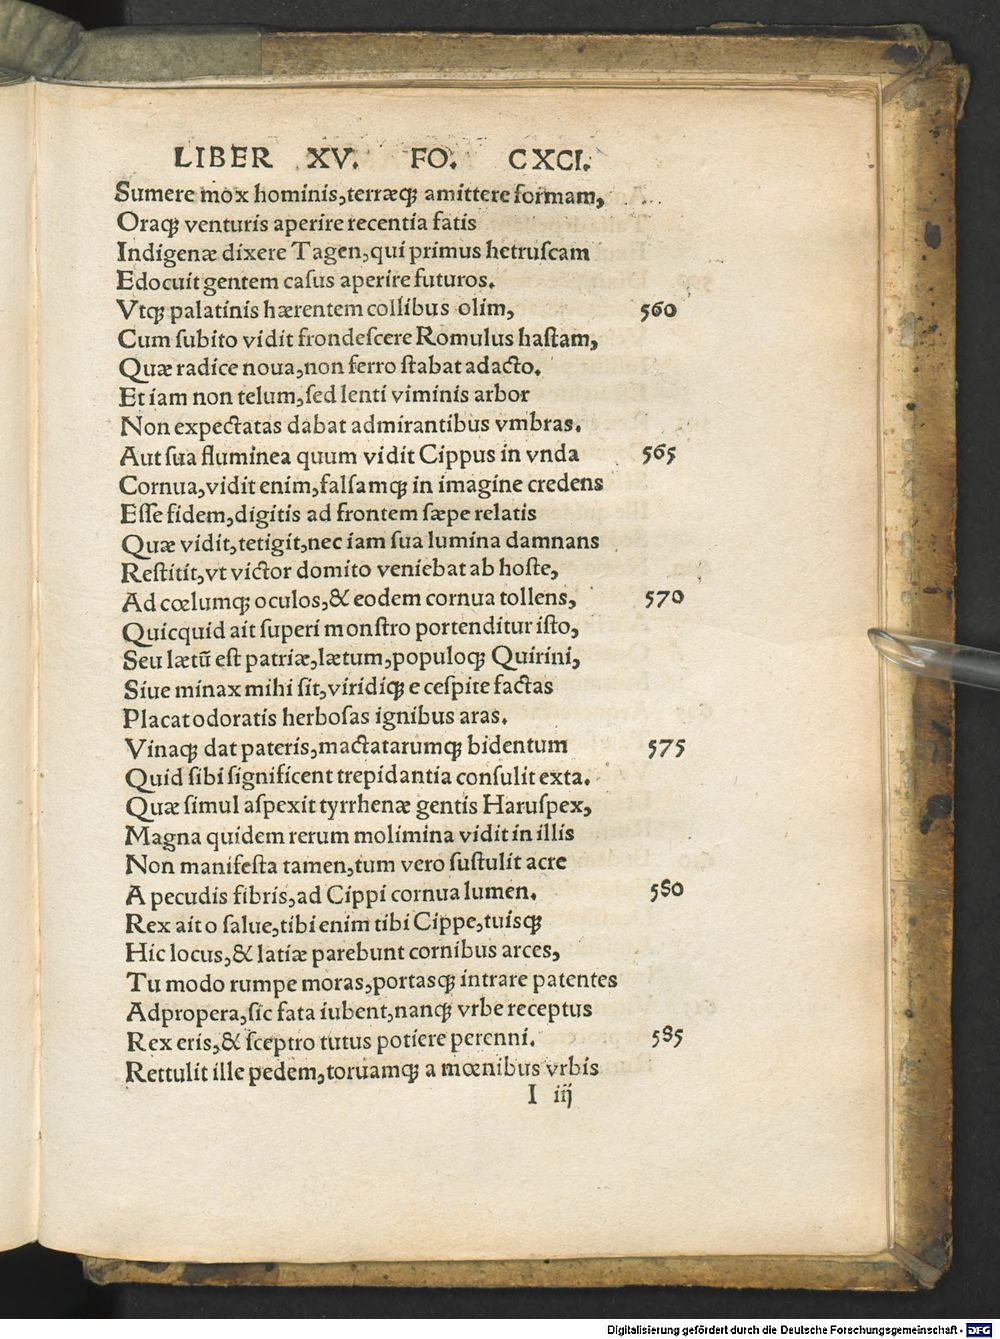 LIBER XV. FO. CXCI.
Sumere mox hominis,terræq; amittere formam,
Oraq; venturis aperire recentia fatis
Indigenæ dixere Tagen,qui primus hetruſcam
Edocuit gentem caſus aperire futuros.
Vtq; palatinis hærentem collibus olim, 560
Cum ſubito vidit frondeſcere Romulus haſtam,
Quæ radice noua,non ferro ſtabat adacto.
Et iam non telum,ſed lenti viminis arbor
Non expectatas dabat admirantibus vmbras.
Aut ſua fluminea quum vidit Cippus in vnda 565
Cornua,vidit enim,falſamq; in imagine credens
Eſſe fidem,digitis ad frontem ſæpe relatis
Quæ vidit,tetigit,nec iam ſua lumina damnans
Reſtitit,vt victor domito veniebat ab hoſte,
Ad cœlumq; oculos,& eodem cornua tollens, 570
Quicquid ait ſuperi monſtro portenditur iſto,
Seu lætū eſt patriæ,lætum,populoq; Quirini,
Siue minax mihi ſit,viridiq; e ceſpite factas
Placat odoratis herboſas ignibus aras.
Vinaq; dat pateris,mactatarumq; bidentum 575
Quid ſibi ſignificent trepidantia conſulit exta.
Quæ ſimul aſpexit tyrrhenæ gentis Haruſpex,
Magna quidem rerum molimina vidit in illis
Non manifeſta tamen,tum vero ſuſtulit acre
A pecudis fibris,ad Cippi cornua lumen. 580
Rex ait o ſalue,tibi enim tibi Cippe,tuisq;
Hic locus,& latiæ parebunt cornibus arces,
Tu modo rumpe moras,portasq; intrare patentes
Adpropera,ſic fata iubent,nanq; vrbe receptus
Rex eris,& ſceptro tutus potiere perenni. 585
Rettulit ille pedem,toruamq; a mœnibus vrbis
I iij
Digitalisierung gefördert durch die Deutsche Forschungsgemeinschaft - DFG